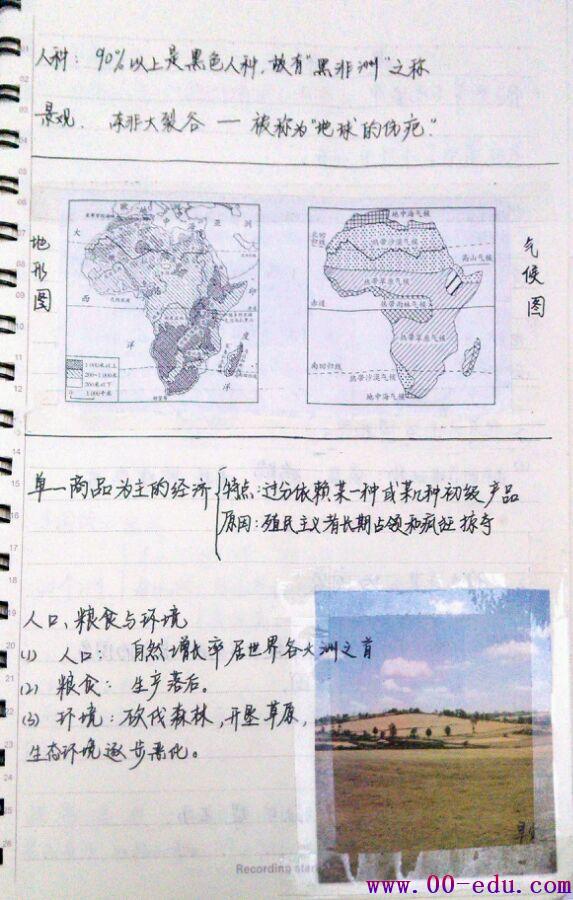 人种：90%以上是黑色人种，故有"黑非洲"之称
景观：东非大裂谷 — 被称为"地球的伤疤"
地形图
气候图
亚 洲
大
西
洋
印
度
洋
1 000米以上
200~1 000米
200米以下
地中海气候
北回归线
热带沙漠气候
高山气候
热带草原气候
赤道
热带雨林气候
热带草原气候
南回归线
热带沙漠气候
地中海气候
单一商品为主的经济
特点：过分依赖某一种或某几种初级产品
原因：殖民主义者长期占领和疯狂掠夺
人口、粮食与环境
(1) 人口：自然增长率居世界各大洲之首
(2) 粮食：生产落后。
(3) 环境：砍伐森林，开垦草原，
生态环境逐步恶化。
Recording
www.00-edu.com